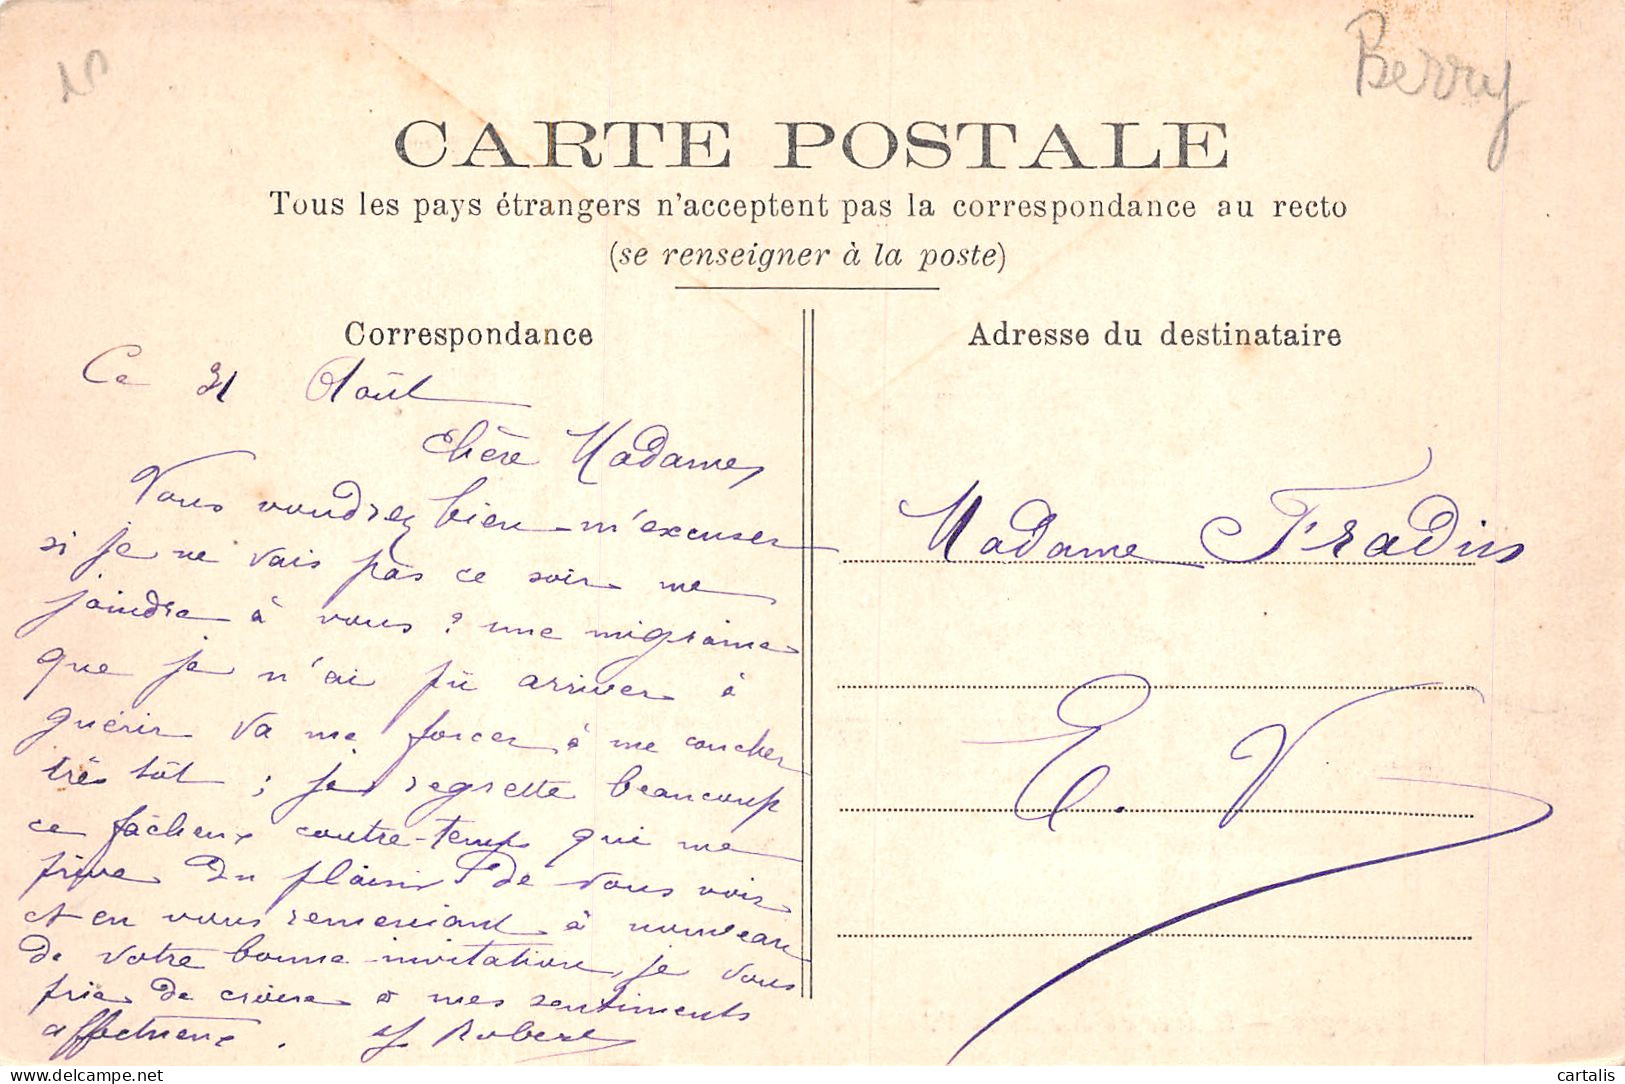 Berry
CARTE POSTALE
Tous les pays étrangers n'acceptent pas la correspondance au recto
(se renseigner à la poste)
Correspondance
Ce 31 Août
Chère Madame,
Vous voudrez bien m'excuser
si je ne vais pas ce soir me
joindre à vous ; une migraine
que je n'ai pû arriver à
guérir va me forcer à me coucher
très tôt ; je regrette beaucoup
ce fâcheux contre-temps qui me
prive du plaisir de vous voir
et en vous remerciant à nouveau
de votre bonne invitation, je vous
prie de croire à mes sentiments
affectueux. Robert
Adresse du destinataire
Madame Fradin
E. V.
cartalis